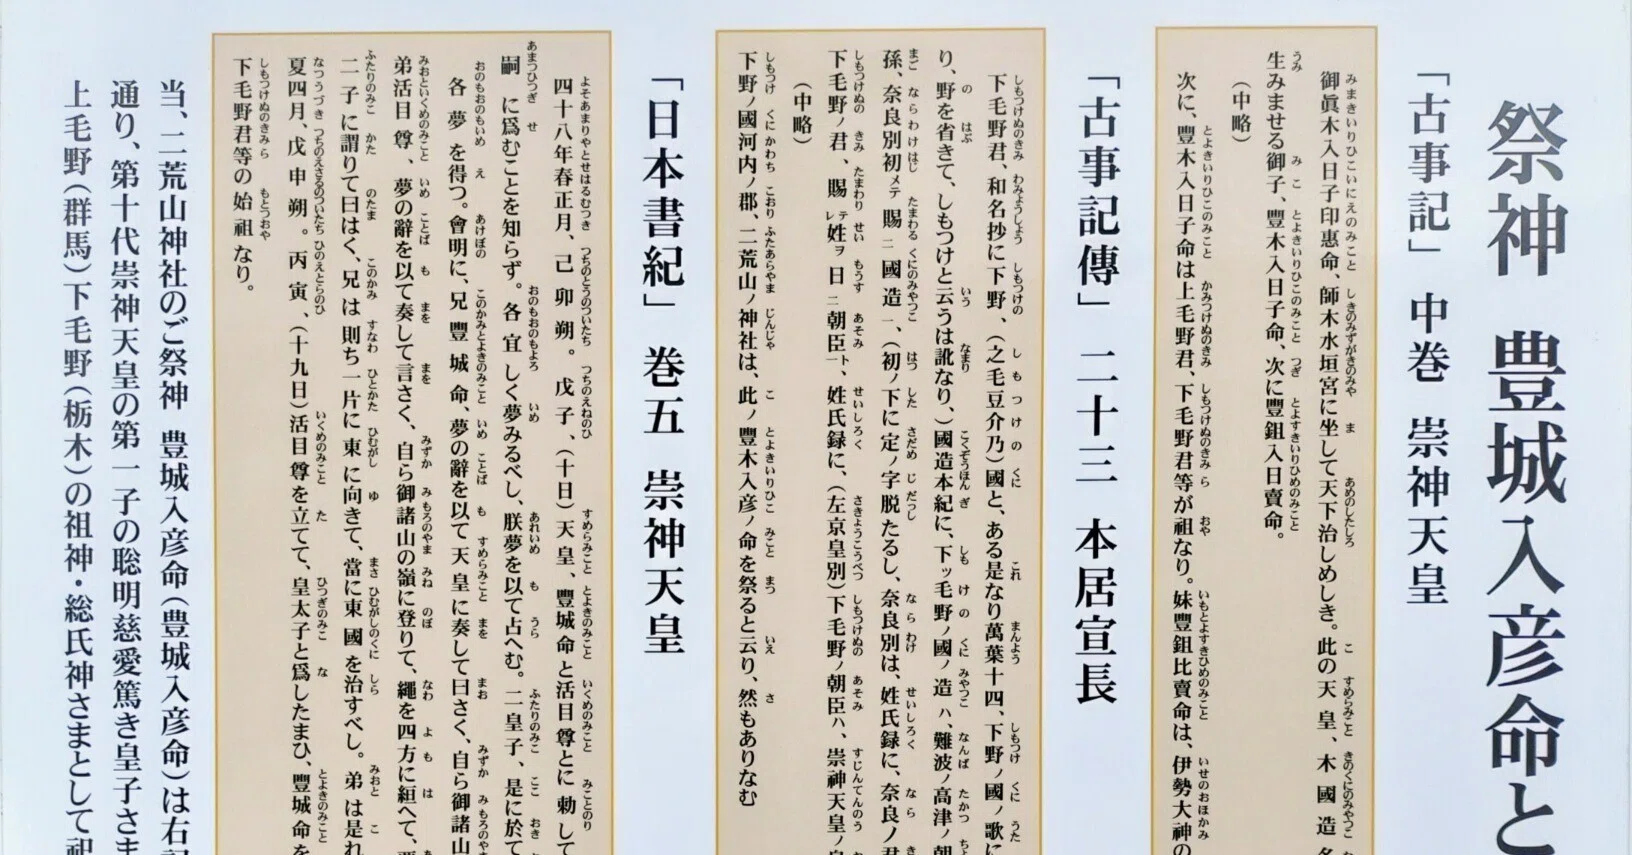 祭神 豊城入彦命と
「古事記」 中巻 崇神天皇
御眞木入日子印惠命、師木水垣宮に坐して天下治しめしき。此の天皇、木國造
生みませる御子、豐木入日子命、次に豐鉏入日賣命。
(中略)
次に、豐木入日子命は上毛野君、下毛野君等が祖なり。妹豐鉏比賣命は、伊勢大神の
「古事記傳」 二十三 本居宣長
下毛野君、和名抄に下野、(之毛豆介乃)國と、ある是なり萬葉十四、下野ノ國ノ歌に
り、野を省きて、しもつけと云うは訛なり、)國造本紀に、下ッ毛野ノ國ノ造ハ、難波ノ高津ノ朝
孫、奈良別初メテ賜ニ國造一、(初ノ下に定ノ字脱たるし、奈良別は、姓氏録に、奈良ノ君
下毛野ノ君、賜レ姓ヲ日ニ朝臣一ト、姓氏録に、(左京皇別)下毛野ノ朝臣ハ、崇神天皇ノ皇
(中略)
下野ノ國河内ノ郡、二荒山ノ神社は、此ノ豐木入彦ノ命を祭ると云り、然もありなむ
「日本書紀」 巻五 崇神天皇
四十八年春正月、己卯朔。戊子、(十日)天皇、豐城命と活目尊とに勅して
嗣に爲むことを知らず。各宜しく夢みるべし、朕夢を以て占へむ。二皇子、是に於て
各夢を得つ。會明に、兄豐城命、夢の辭を以て天皇に奏して曰さく、自ら御諸山
弟活目尊、夢の辭を以て奏して言さく、自ら御諸山の嶺に登りて、繩を四方に絙へて、
二子に謂りて曰はく、兄は則ち一片に東に向きて、當に東國を治すべし。弟は是れ
夏四月、戊申朔。丙寅、(十九日)活目尊を立てて、皇太子と爲したまひ、豐城命を
下毛野君等の始祖なり。
当、二荒山神社のご祭神 豊城入彦命(豊城入彦命)は右記
通り、第十代崇神天皇の第一子の聡明慈愛篤き皇子さま
上毛野(群馬)下毛野(栃木)の祖神・総氏神さまとして祀